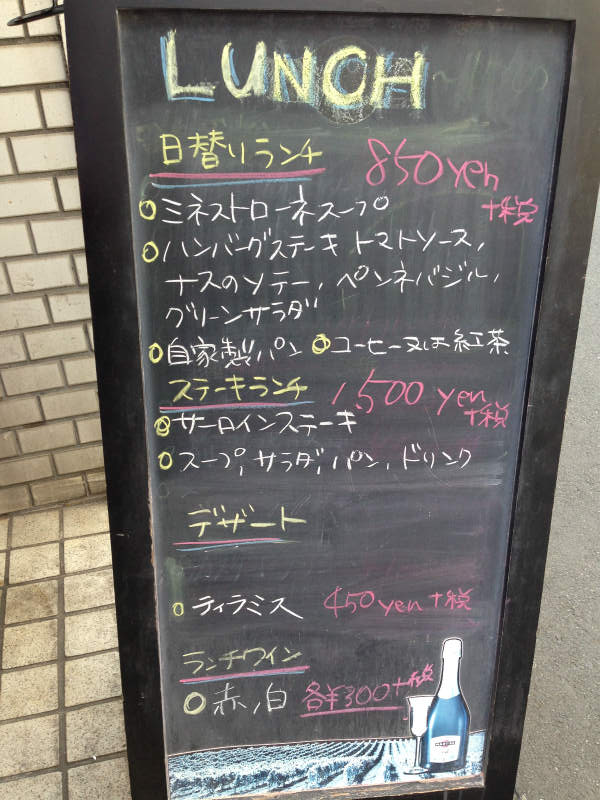 LUNCH
日替りランチ 850yen
+税
○ミネストローネスープ
○ハンバーグステーキ トマトソース,
ナスのソテー, ペンネバジル,
グリーンサラダ
○自家製パン ○コーヒー又は紅茶
ステーキランチ 1,500 yen
+税
○サーロインステーキ
○スープ, サラダ, パン, ドリンク
デザート
○ティラミス 450yen+税
ランチワイン
○赤/白 各¥300+税
MARTINI